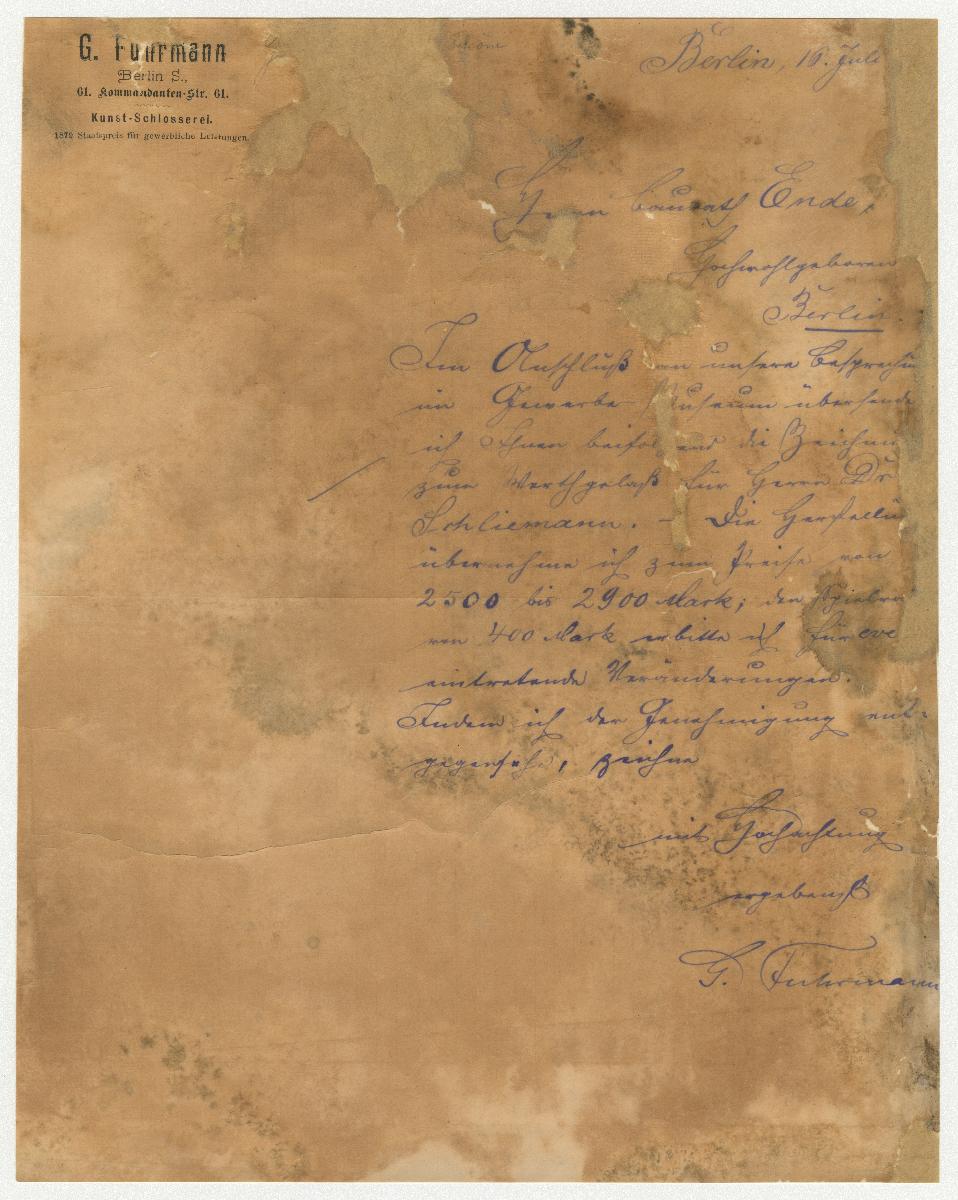 G. Fuhrmann
Berlin S.,
61. Kommandanten-Str. 61.
Kunst-Schlosserei.
1879 Staatspreis für gewerbliche Leistungen.
Berlin, 16. Juli
Herrn Baurath Ende,
Hochwohlgeboren
Berlin.
Im Anschluß an unsere Besprechu
im Gewerbe-Museum übersende
ich Ihnen beifolgend die Zeichnu
zum Werthgelaß für Herrn Dr
Schliemann. – Die Herstellu
übernehme ich zum Preise von
2500 bis 2900 Mark; den Spielra
von 400 Mark erbitte ich für eve
eintretende Veränderungen.
Indem ich der Genehmigung ent-
gegensehe, zeichne
mit Hochachtung
ergebenst
G. Fuhrmann